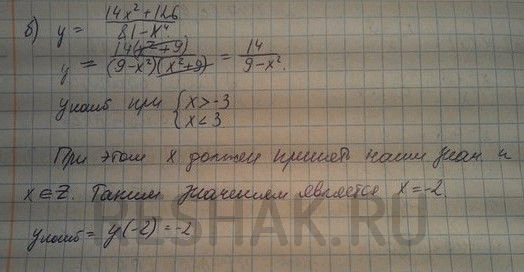 б) y = (14x² + 126)/(81 - x⁴)
y = 14(x² + 9)/((9 - x²)(x² + 9)) = 14/(9 - x²).
yнаиб при { x > -3
x < 3
При этом x должен принять наим знач и
x ∈ Z. Таким значением является x = -2.
yнаиб = y(-2) = -2
RESHAK.RU